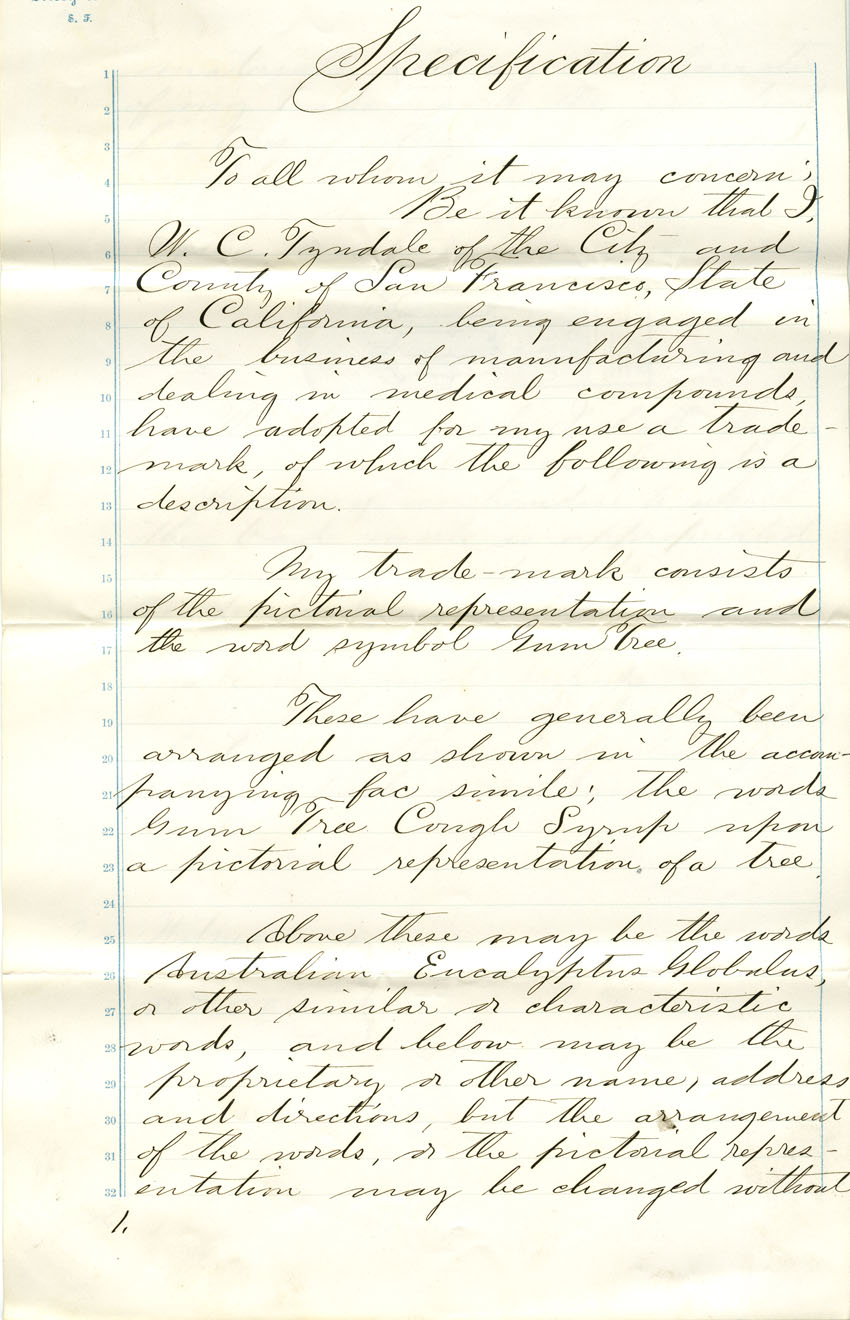 S. F.
Specification
1
2
3
4 To all whom it may concern;
5 Be it known that I,
6 W. C. Tyndale of the City and
7 County of San Francisco, State
8 of California, being engaged in
9 the business of manufacturing and
10 dealing in medical compounds,
11 have adopted for my use a trade-
12 mark, of which the following is a
13 description.
14
15 My trade-mark consists
16 of the pictorial representation and
17 the word symbol Gum Tree.
18
19 These have generally been
20 arranged as shown in the accom-
21 panying fac simile; the words
22 Gum Tree Cough Syrup upon
23 a pictorial representation of a tree.
24
25 Above these may be the words
26 Australian Eucalyptus Globulus,
27 or other similar or characteristic
28 words, and below may be the
29 proprietary or other name, address
30 and directions, but the arrangement
31 of the words, or the pictorial repres-
32 entation may be changed without
1.